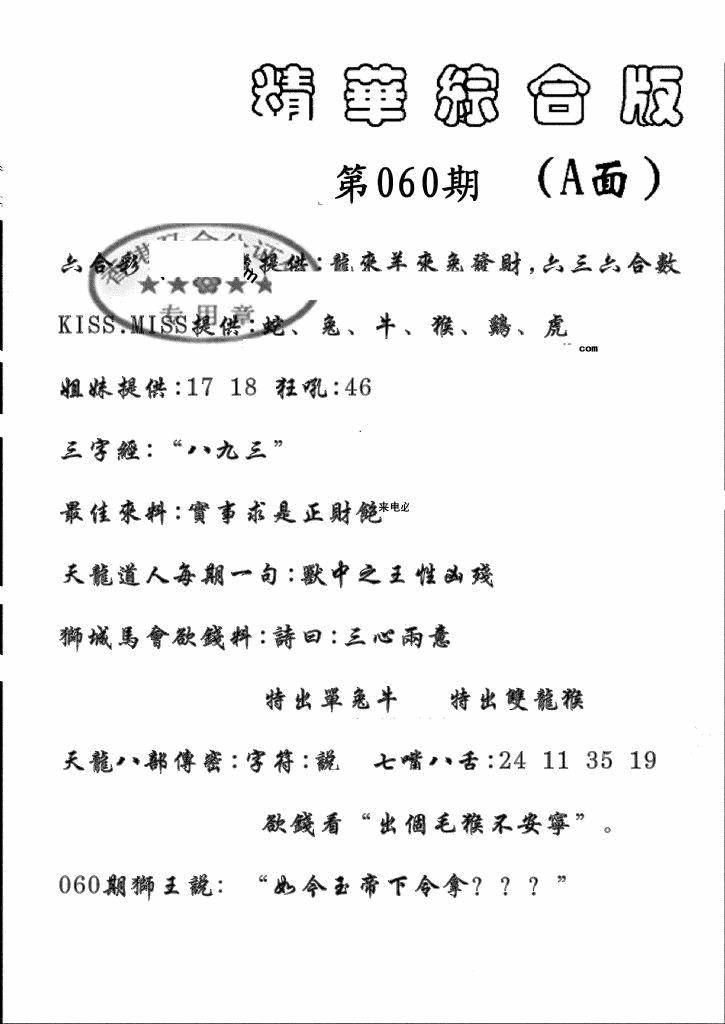 精華綜合版
第060期 (A面)
六合彩 提供:龍來羊來兔發財,六三六合數
專用章
KISS.MISS提供:蛇、兔、牛、猴、鷄、虎
com
姐妹提供:17 18 狂吼:46
三字經:“八九三”
最佳來料:實事求是正財飽来电必
天龍道人每期一句:獸中之王性凶殘
獅城馬會欲錢料:詩曰:三心兩意
特出單兔牛 特出雙龍猴
天龍八部傳密:字符:説 七嘴八舌:24 11 35 19
欲錢看“出個毛猴不安寧”。
060期獅王説: “如今玉帝下令拿？？？”